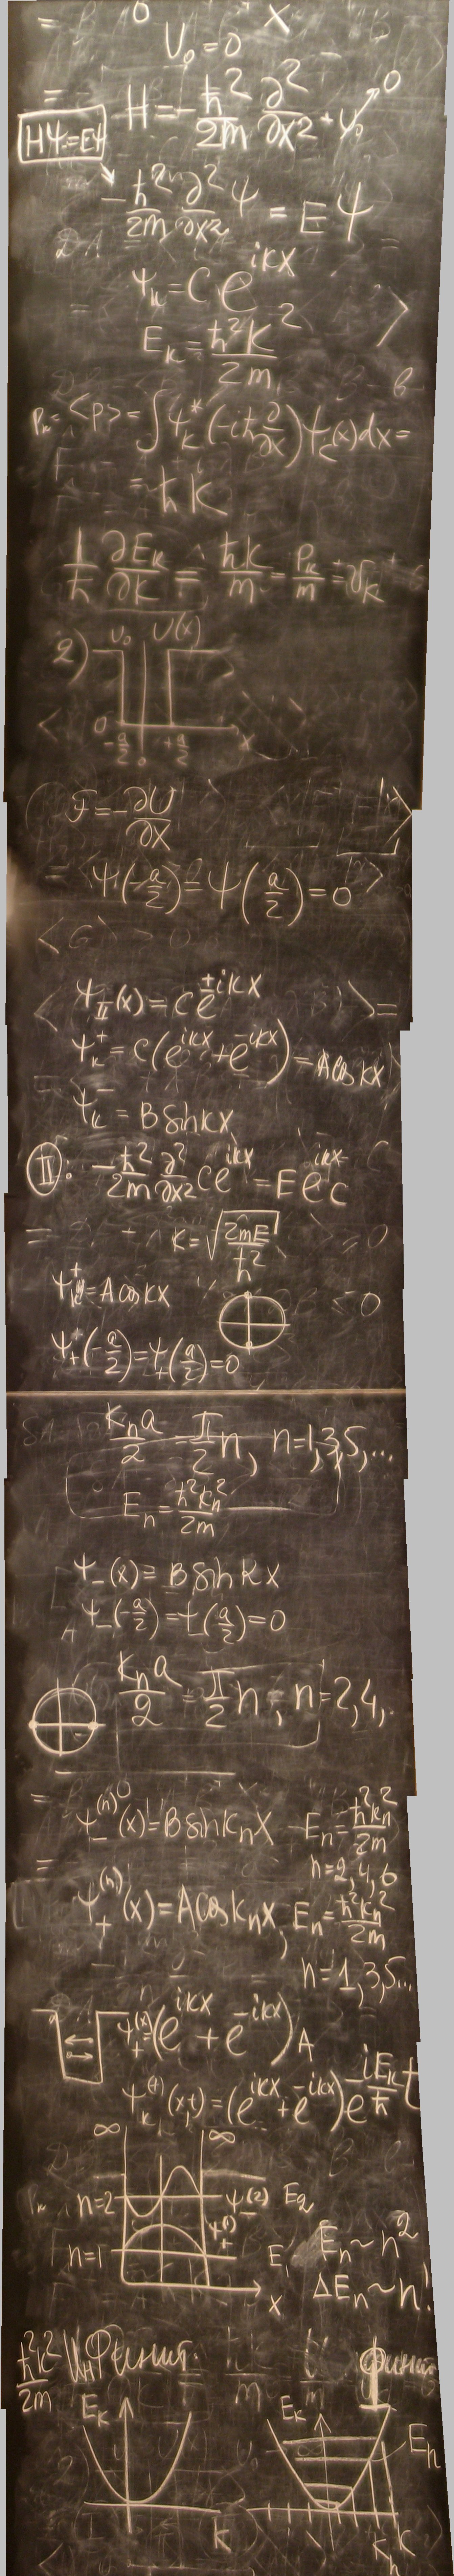 U₀ = 0
H = -ħ²/2m ∂²/∂x² + U₀ → 0
HΨ = EΨ
-ħ²/2m ∂²/∂x² Ψ = EΨ
Ψ_k = C e^{ikx}
E_k = ħ²k²/2m
P_k = <p> = ∫ Ψ_k^* (-iħ ∂/∂x) Ψ_k(x) dx =
= ħk
1/ħ ∂E_k/∂k = ħk/m = P_k/m = v_k
2) U₀ U(x)
0 -a/2 0 +a/2 x
F = -∂U/∂x
Ψ(-a/2) = Ψ(a/2) = 0
Ψ_II(x) = C e^{±ikx}
Ψ_k^+ = C(e^{ikx} + e^{-ikx}) = A cos kx
Ψ_k^- = B sin kx
II: -ħ²/2m ∂²/∂x² C e^{ikx} = E e^{ikx} C
k = √(2mE/ħ²)
Ψ_k^+ = A cos kx
Ψ_+(-a/2) = Ψ_+(a/2) = 0
k_n a/2 = π/2 n, n = 1,3,5,...
E_n = ħ²k_n²/2m
Ψ_-(x) = B sin kx
Ψ_-(-a/2) = Ψ_-(a/2) = 0
k_n a/2 = π/2 n, n = 2,4,.
Ψ_-^{(n)}(x) = B sin k_n x E_n = ħ²k_n²/2m
n = 2,4,6
Ψ_+^{(n)}(x) = A cos k_n x, E_n = ħ²k_n²/2m
n = 1,3,5...
Ψ_+^{(x)} = (e^{ikx} + e^{-ikx}) A
Ψ_k^{(+)}(x,t) = (e^{ikx} + e^{-ikx}) e^{-iE_k/ħ t}
∞ ∞
n=2 Ψ_-^{(2)} E₂
n=1 Ψ_+^{(1)} E₁
x
E_n ~ n²
ΔE_n ~ n!
ħ²k²/2m Инфинит. Финит
E_k k
E_k E_n k_n k